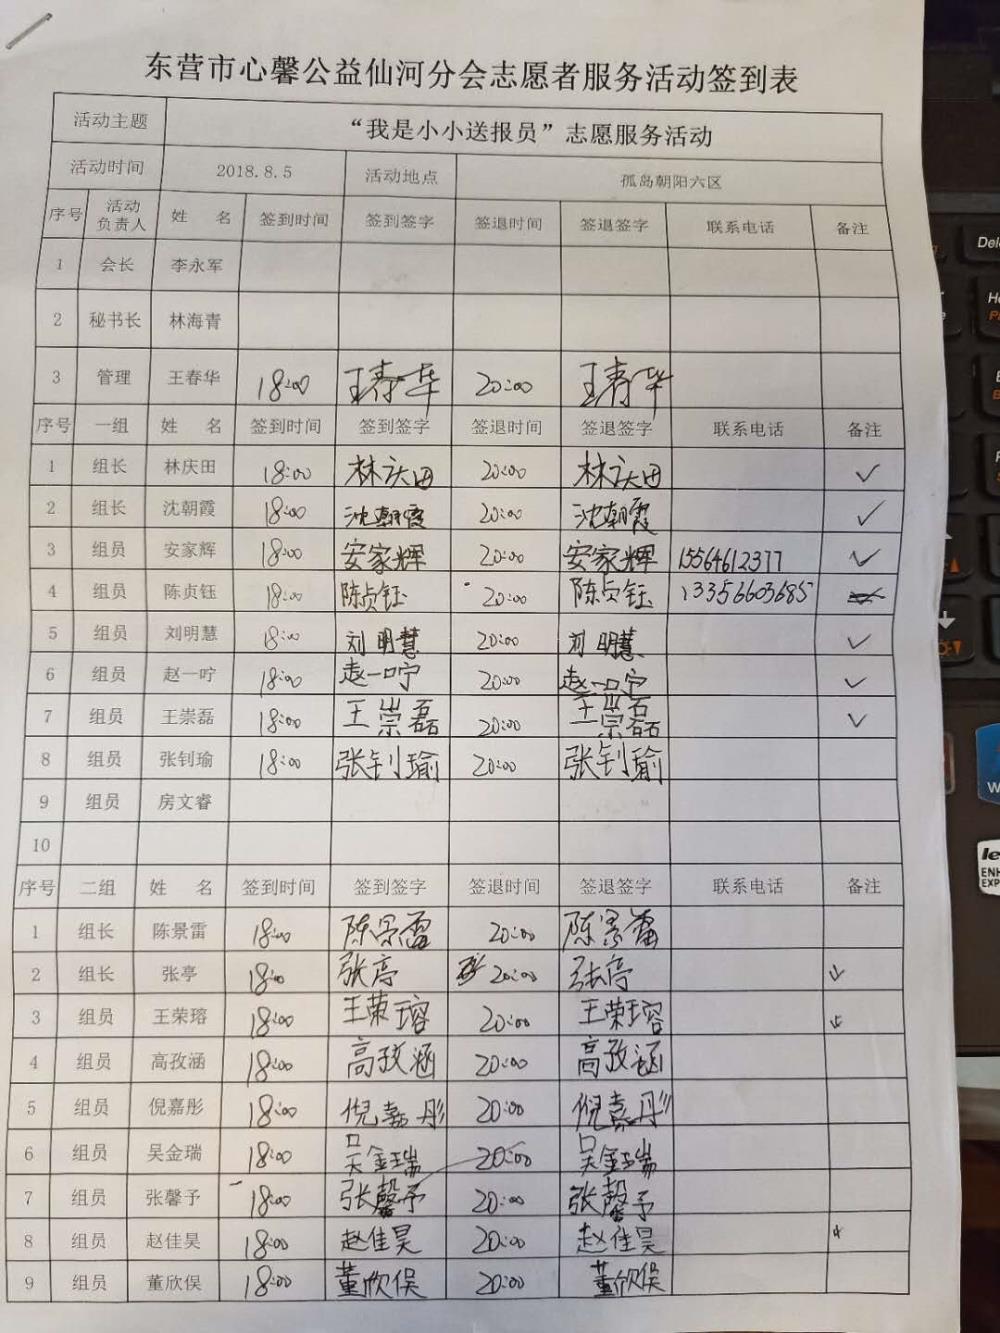 东营市心馨公益仙河分会志愿者服务活动签到表
活动主题 “我是小小送报员”志愿服务活动
活动时间 2018.8.5 活动地点 孤岛朝阳六区
序号 活动负责人 姓 名 签到时间 签到签字 签退时间 签退签字 联系电话 备注
1 会长 李永军
2 秘书长 林海青
3 管理 王春华 18:00 王春华 20:00 王春华
序号 一组 姓 名 签到时间 签到签字 签退时间 签退签字 联系电话 备注
1 组长 林庆田 18:00 林庆田 20:00 林庆田 ✓
2 组长 沈朝霞 18:00 沈朝霞 20:00 沈朝霞 ✓
3 组员 安家辉 18:00 安家辉 20:00 安家辉 15564612377 ✓
4 组员 陈贞钰 18:00 陈贞钰 20:00 陈贞钰 13356603685
5 组员 刘明慧 18:00 刘明慧 20:00 刘明慧 ✓
6 组员 赵一咛 18:00 赵一咛 20:00 赵一咛 ✓
7 组员 王崇磊 18:00 王崇磊 20:00 王崇磊 ✓
8 组员 张钊瑜 18:00 张钊瑜 20:00 张钊瑜
9 组员 房文睿
10
序号 二组 姓 名 签到时间 签到签字 签退时间 签退签字 联系电话 备注
1 组长 陈景雷 18:00 陈景雷 20:00 陈景雷
2 组长 张亭 18:00 张亭 20:00 张亭
3 组员 王荣瑢 18:00 王荣瑢 20:00 王荣瑢
4 组员 高孜涵 18:00 高孜涵 20:00 高孜涵
5 组员 倪嘉彤 18:00 倪嘉彤 20:00 倪嘉彤
6 组员 吴金瑞 18:00 吴金瑞 20:00 吴金瑞
7 组员 张馨予 18:00 张馨予 20:00 张馨予
8 组员 赵佳昊 18:00 赵佳昊 20:00 赵佳昊
9 组员 董欣俣 18:00 董欣俣 20:00 董欣俣